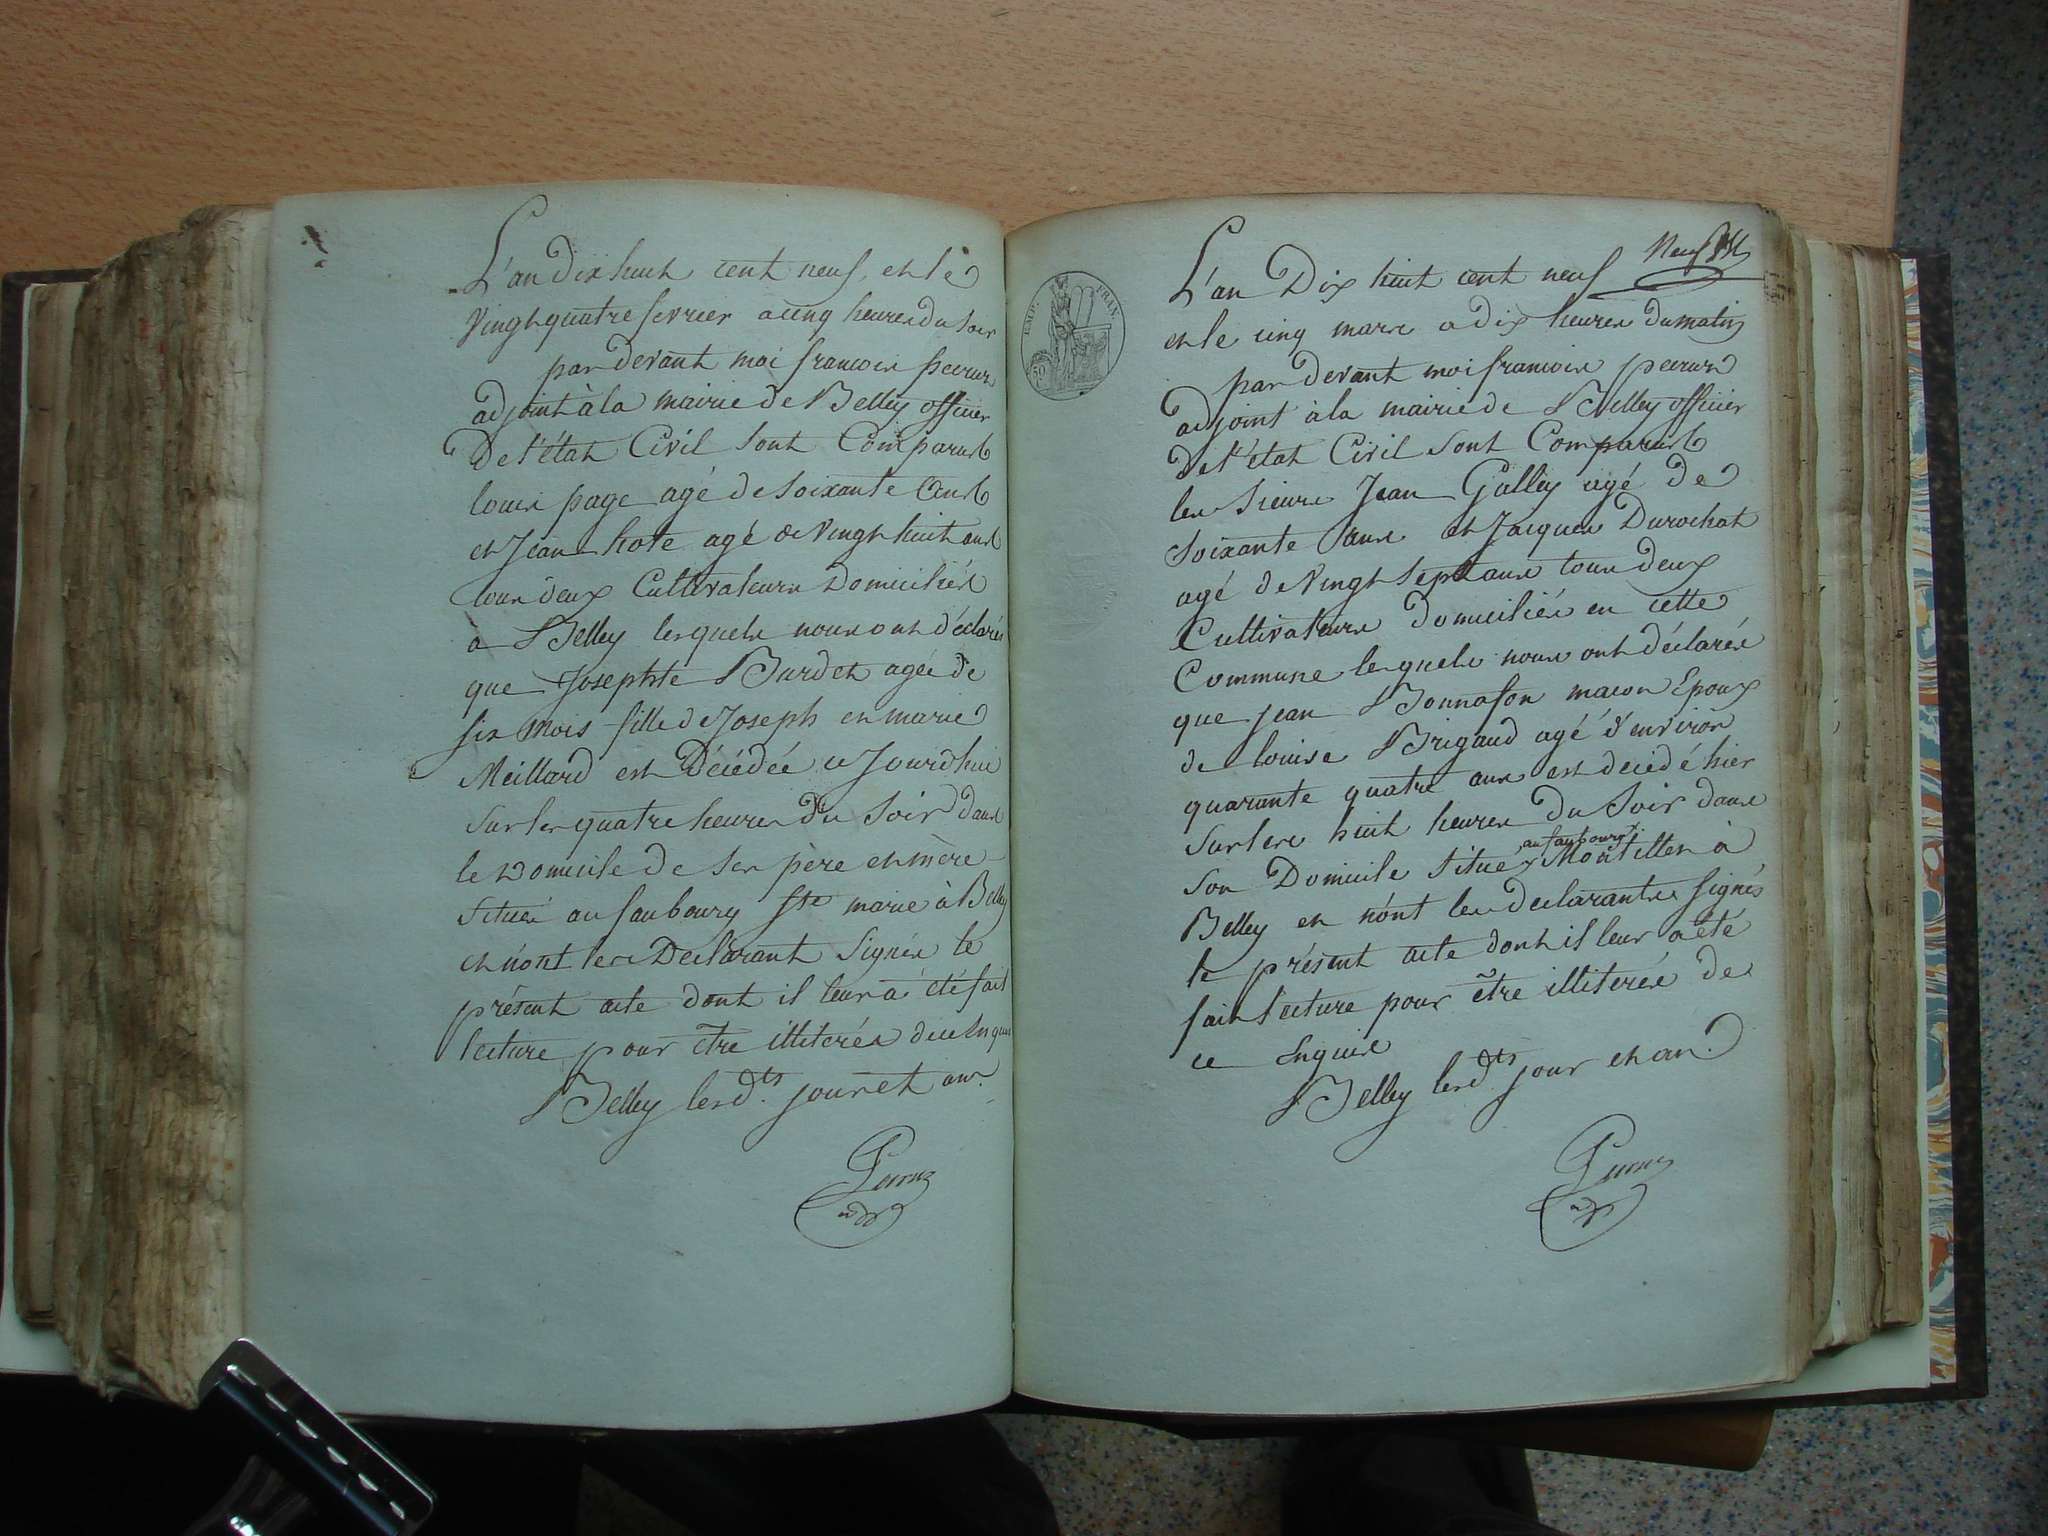 L'an dix huit cent neuf et le
vingt quatre fevrier a cinq heures du soir
par devant moi francois
adjoint à la mairie de Belley officier
de l'état Civil sont Comparus
louis page agé de soixante ans
et Jean hote agé de vingt huit ans
tous deux Cultivateurs Domiciliés
a Belley lesquels nous ont déclarés
que Josephte Burdet agée de
six mois fille de Joseph et marie
Meillard est Décédée ce Jourd'hui
sur les quatre heures Du Soir dans
le Domicile de ses père et mère
situé au faubourg Ste marie à Belley
et n'ont les Déclarant Signés le
présent acte dont il leur a été fait
lecture pour être illiterés de ce Enquis
Belley lesd.ts jour et an.
L'an Dix huit cent neuf
et le cinq mars a dix heures du matin
par devant moi francois
adjoint à la mairie de Belley officier
de l'état Civil sont Comparus
les sieurs Jean Galley agé de
soixante ans et Jacques Durochat
agé de vingt sept ans tous deux
Cultivateurs domiciliés en cette
Commune lesquels nous ont déclarés
que jean Bonnafon macon Epoux
de louise Brigaud agé d'environ
quarante quatre ans est decedé hier
sur les huit heures du Soir dans
son Domicile situé au faubourg Montillet à
Belley et n'ont les declarants signés
le présent acte dont il leur a été
fait lecture pour être illiterés de
ce Enquis
Belley lesd.ts jour et an.
EMP. FRAN.